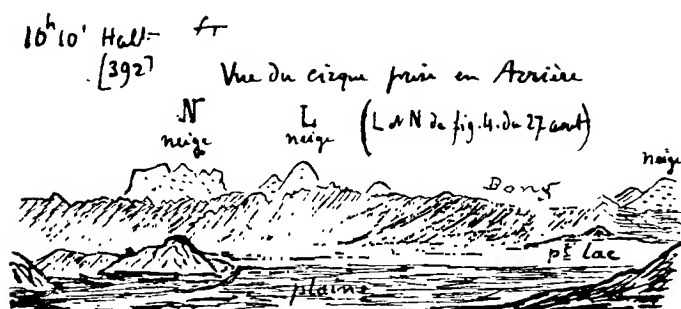 10h10' Halt
[392]
Vue du cirque prise en Arrière
N
neige
L
neige
(L et N de fig. 4. du 27 aout)
neige
Bong
pt lac
plaine